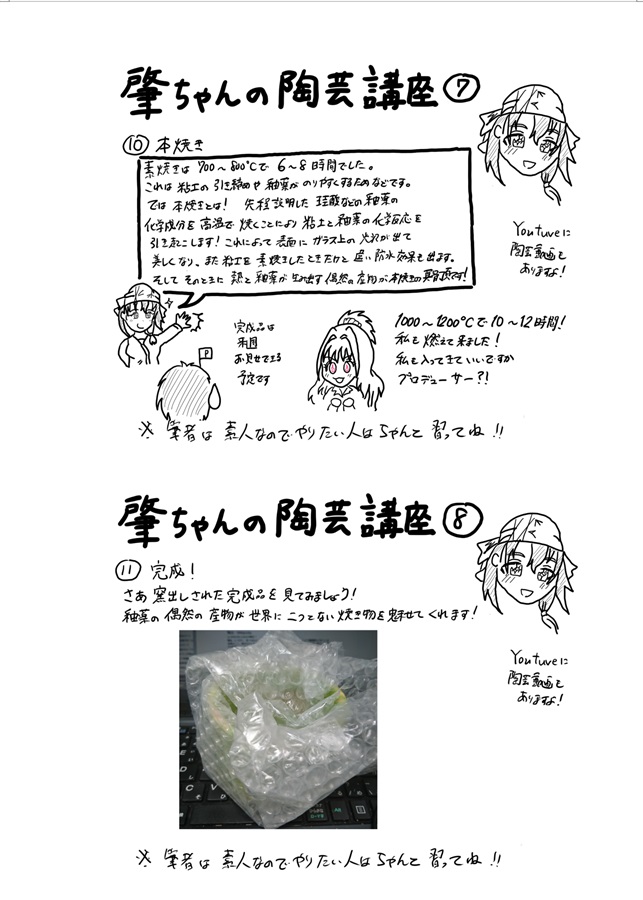 肇ちゃんの陶芸講座⑦
⑩ 本焼き
素焼きは 700～800℃で 6～8時間でした。
これは 粘土の 引き締めや 釉薬が のりやすくするためなどです。
では 本焼きとは! 先程説明した 珪酸などの 釉薬の
化学成分を 高温で 焼くことにより 粘土と釉薬の化学反応を
引き起こします!これによって表面に ガラス上の 汚れが出て
美しくなり、また粘土を 素焼きしたときだけと 違い防水効果も出ます。
そして そのときに 熱と 釉薬が 生み出す 偶然の産物が本焼きの真骨頂です!
Youtuveに
陶芸動画も
ありますよ!
完成品は
来週
お見せできる
予定です
P
1000～1200℃で10～12時間!
私も 燃えて来ました!
私も入ってきていいですか
プロデューサー?!
※ 筆者は 素人なので やりたい人は ちゃんと 習ってね!!
肇ちゃんの陶芸講座⑧
⑪ 完成!
さあ 窯出しされた 完成品を 見てみましょう!
釉薬の 偶然の 産物が 世界に 二つとない 焼き物を 魅せてくれます!
Youtuveに
陶芸動画も
ありますよ!
※ 筆者は 素人なので やりたい人は ちゃんと 習ってね!!